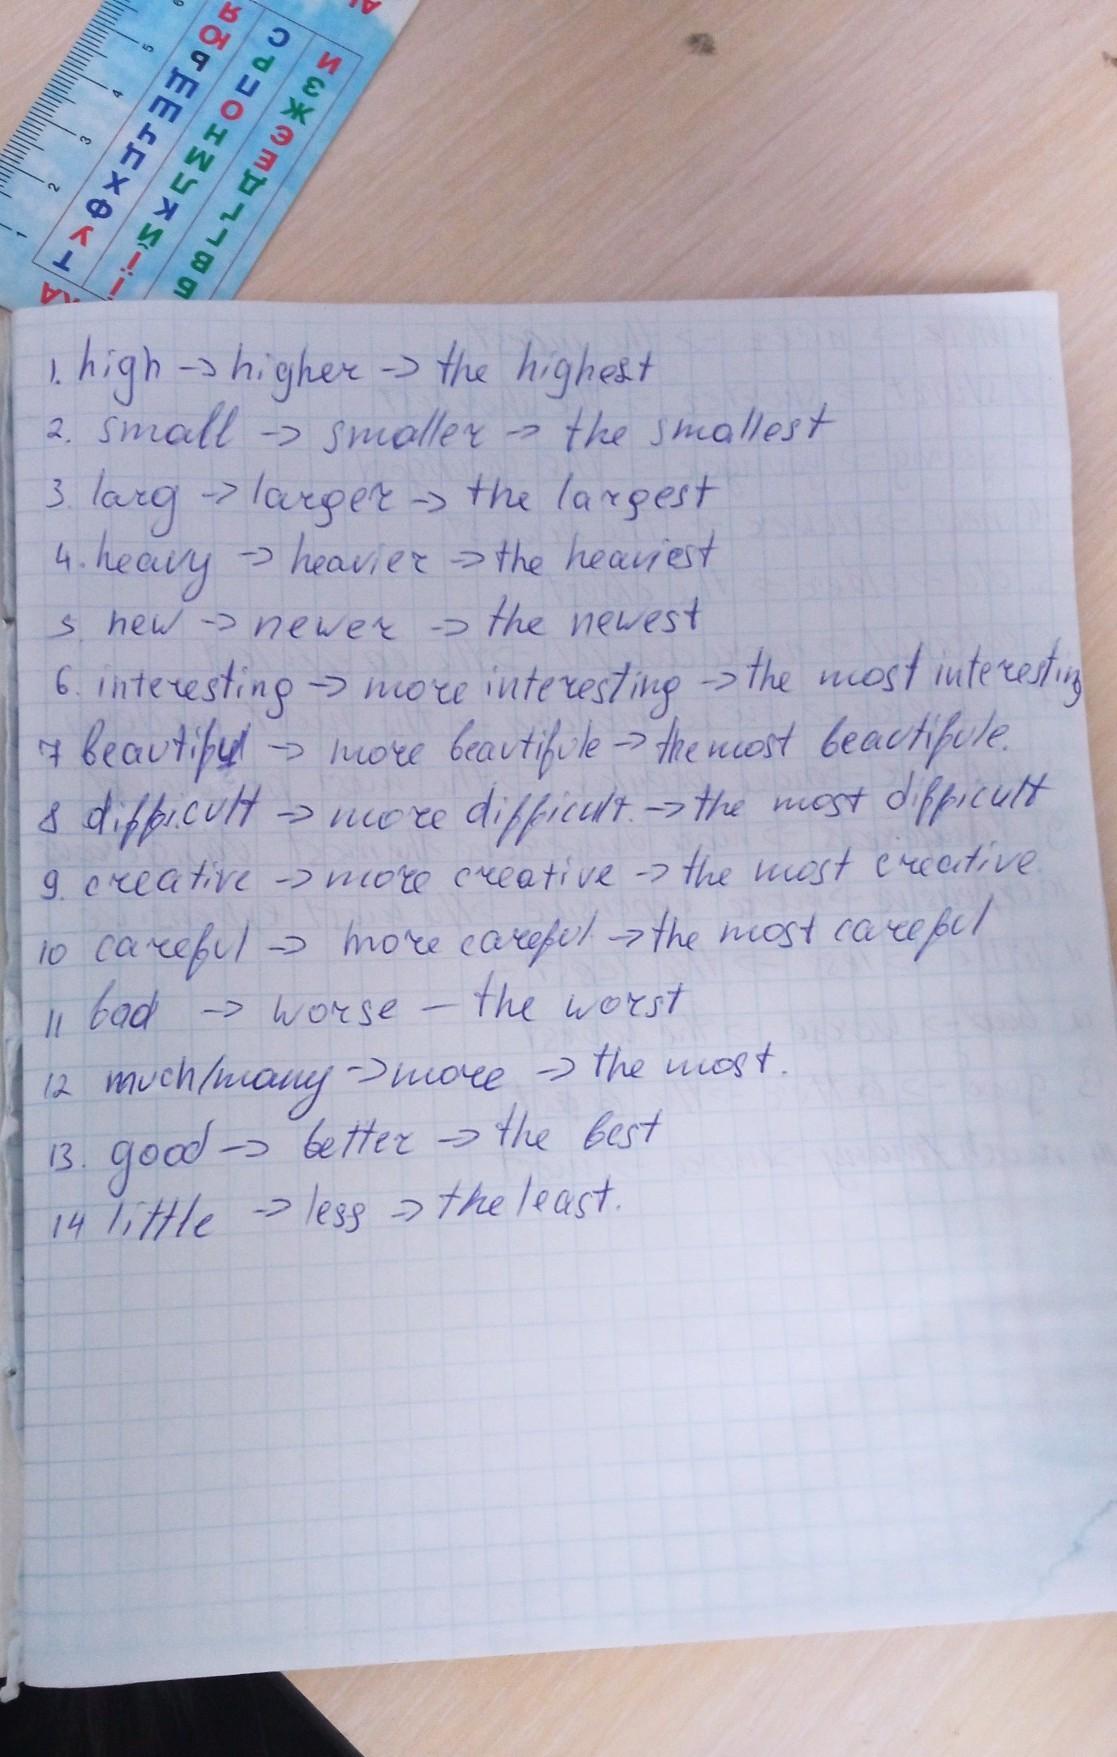 1 2 3 4 5 6
Т У Ф Х Ц Ч Ш Щ Ь Ю Я
І Ї Й К Л М Н О П Р С
Б В Г Ґ Д Е Є Ж З И
1. high -> higher -> the highest
2. small -> smaller -> the smallest
3. larg -> larger -> the largest
4. heavy -> heavier -> the heaviest
5. new -> newer -> the newest
6. interesting -> more interesting -> the most interesting
7 beautiful -> more beautifule -> the most beautifule.
8 difficult -> more difficult. -> the most difficult
9. creative -> more creative -> the most creative
10 careful -> more careful -> the most careful
11 bad -> worse – the worst
12 much/many -> more -> the most.
13. good -> better -> the best
14 little -> less -> the least.